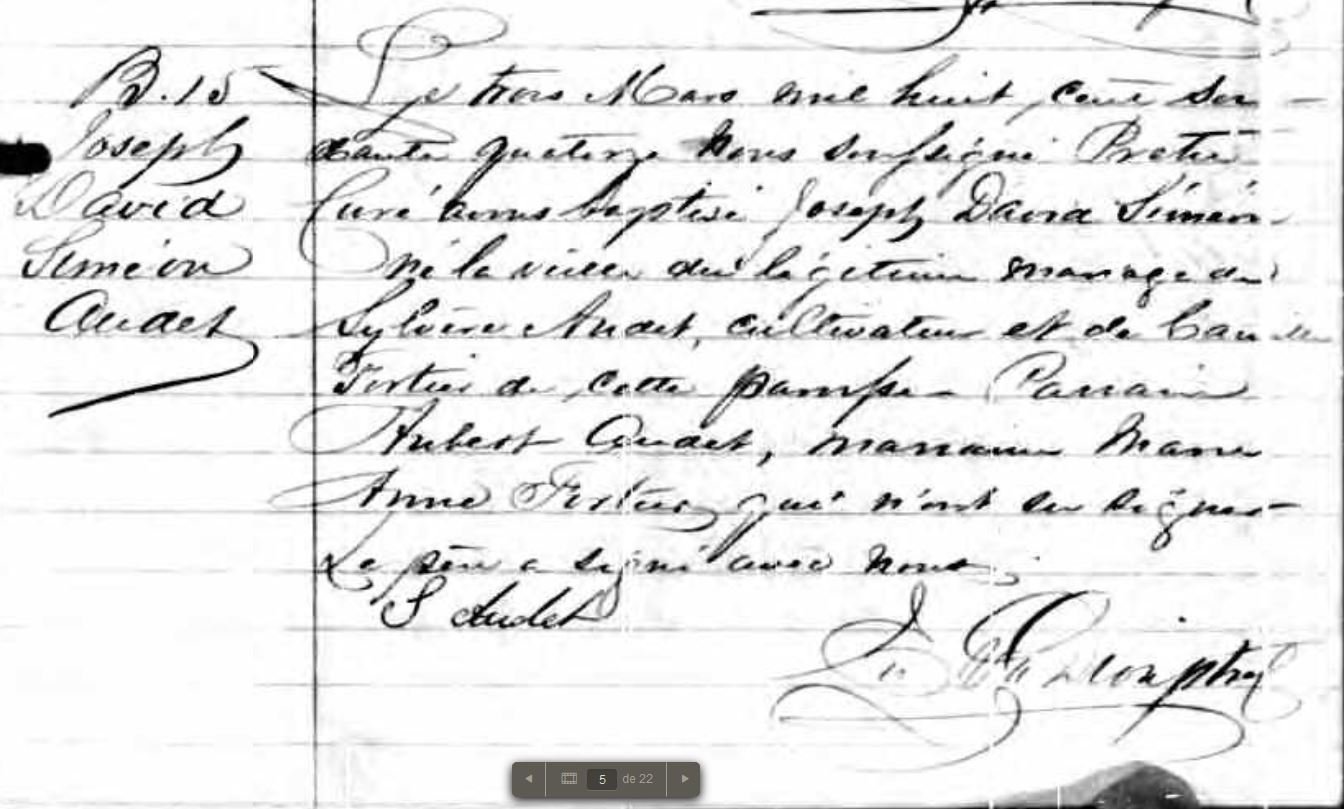 B. 15
Joseph
David
Siméon
Audet
Le trois Mars mil huit cent soi-
xante quatorze Nous soussigné Prêtre
Curé avons baptisé Joseph David Siméon
Né la veille du légitime mariage de
Sylvère Audet, cultivateur et de
Fortier de cette paroisse Parrain
Hubert Audet, marraine Marie
Anne Fortier qui n'ont su signer
Le père a signé avec nous
S Audet
5 de 22